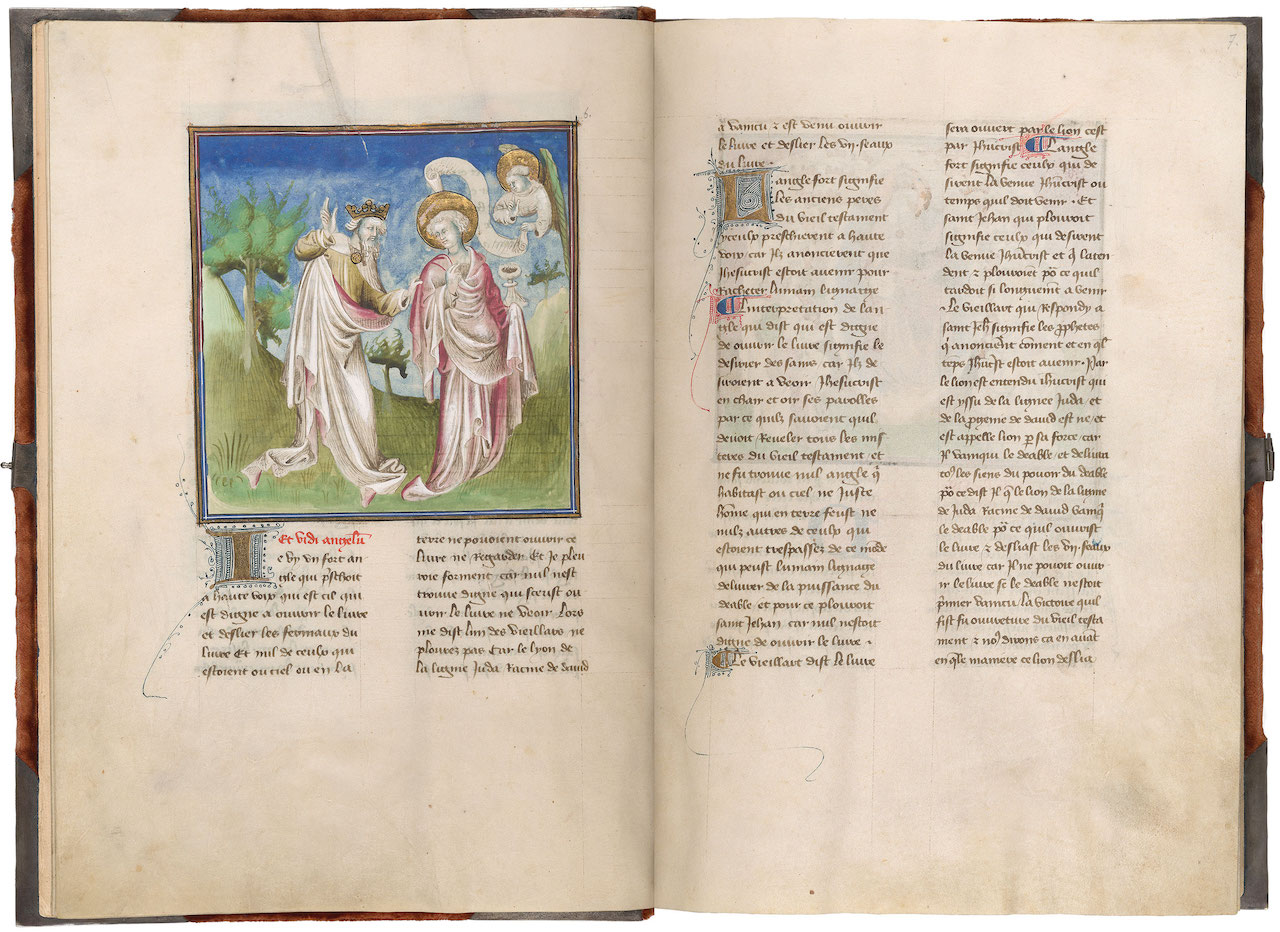 6.
Et vidi angelū
Ie vy vn fort an
gle qui p̄schoit
a haute voix qui est cil qui
est digne a ouurir le liure
et deslier les fermaux du
liure Et nul de ceulx qui
estoient ou ciel ou en la
terre ne pouoient ouurir ce
liure ne regarder Et je plou
roie forment car nul nest
trouue digne qui scrust ou
urir le liure ne veoir Lors
me dist lun des vieillars ne
plourez pas Car le lyon de
la lignie Juda Racine de dauid
7.
a vaincu ⁊ est venu ouurir
le liure et deslier les vij. seaux
du liure.
Langle fort signifie
les anciens peres
du vieil testament
yceulx preschierent a haute
voix car ilz anoncierent que
Jhesucrist estoit auenir pour
racheter lumain lignaige
Linterpretation de lan
gle qui dist qui est digne
de ouurir le liure signifie le
desirier des sains car ilz de
siroient a veoir Jhesucrist
en chair et oir ses parolles
par ce quilz sauoient quil
deuoit reueler tous les mis
teres du vieil testament et
ne fu trouue nul angle q̄
habitast ou ciel ne Juste
hōme qui en terre feust ne
nulz autres de ceulx qui
estoient trespassez de ce mōde
qui peust lumain lignaige
deliurer de la puissance du
deable et pour ce plouroit
saint Jehan car nul nestoit
digne de ouurir le liure.
Le vieillart dist le liure
sera ouuert par le lion cest
par Jhūcrist Langle
fort signifie ceulx qui de
sirent la venue Jhūcrist ou
temps quil doit venir. Et
saint Jehan qui plouroit
signifie ceulx qui desirent
la venue Jhūcrist et q̄ laten
dent ⁊ plouroient po᷑ ce quil
tardoit si longuemēt a venir
Le vieillart qui respondy a
saint Jeh̄ signifie les p̄phetes
q̄ anoncierēt cōment et en q̄l
tēps Jhūc̄st estoit auenir. Par
le lion est entendu ihūcrist qui
est yssu de la lignee Juda et
de la p̄genie de dauid est ne et
est appelle lion p sa force car
il vainqui le deable et deliura
to᷒ les siens du pouoir du deable
po᷑ ce dist il q̄ le lion de la lignie
de Juda Racine de dauid vainq̄
le deable po᷑ ce quil ouurist
le liure ⁊ desliast les vij. seaux
du liure car il ne pouoit ouur
ir le liure se le deable nestoit
p̄mer vaincu la victoire quil
fist fu ouuerture du vieil testa
ment ⁊ no᷒ dirons ca en auāt
en q̄le maniere ce lion deslia